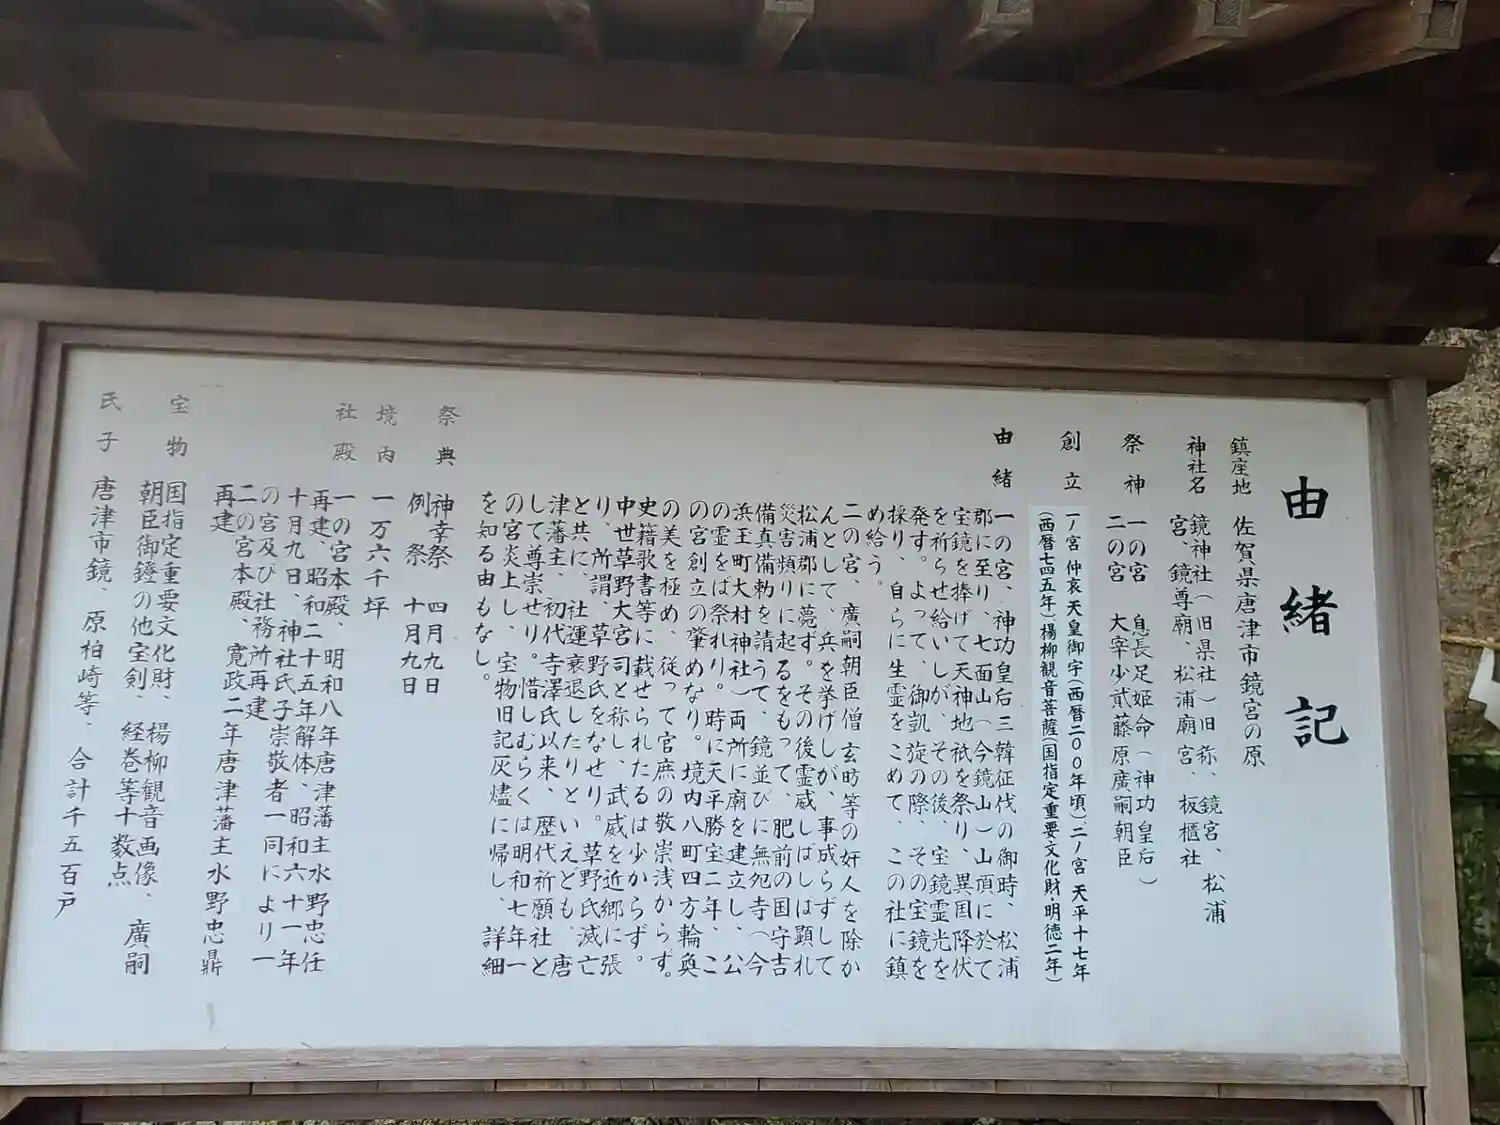 由緒記
鎮座地　佐賀県唐津市鏡宮の原
神社名　鏡神社（旧県社）旧称、鏡宮、松浦
宮、鏡尊廟、松浦廟宮、板櫃社
祭神　一の宮　息長足姫命（神功皇后）
二の宮　大宰少貳藤原廣嗣朝臣
創立　一ノ宮 仲哀天皇御宇（西暦二〇〇年頃）、二ノ宮 天平十七年
（西暦七四五年）楊柳観音菩薩（国指定重要文化財・明徳二年）
由緒　一の宮、神功皇后三韓征伐の御時、松浦
郡に至り、七面山（今鏡山）山頂に於て
宝鏡を捧げて天神地祇を祭り、異国降伏
を祈らせ給いしが、その後、宝鏡霊光を
発す。よって、御凱旋の際、その宝鏡を
採り、自らに生霊をこめて、この社に鎮
め給う。
二の宮、廣嗣朝臣僧玄昉等の奸人を除か
んとして、兵を挙げしが、事成らずして
松浦郡に薨ず。その後霊威しばしば顕れ
災害頻りに起るをもって、肥前の国守吉
備真備勅を請うて、鏡並びに無怨寺（今
浜玉町大村神社）両所に廟を建立し、公
の霊をば祭れり。時に天平勝宝二年、こ
の宮創立の肇めなり。境内八町四方輪奐
の美を極め、従って官庶の敬崇浅からず。
史籍歌書等に載せられたるは少からず。
中世草野大宮司と称し、武威を近郷に張
り、所謂、草野氏をなせり。草野氏滅亡
と共に、社運衰退したりといえども、唐
津藩主、初代寺澤氏以来、歴代祈願社と
して尊崇せり。惜しむらくは明和七年一
の宮炎上し、宝物旧記灰燼に帰し、詳細
を知る由もなし。
祭典　神幸祭　四月九日
例祭　十月九日
境内　一万六千坪
社殿　一の宮本殿、明和八年唐津藩主水野忠任
再建、昭和二十五年解体、昭和六十一年
十月九日、神社氏子崇敬者一同により一
の宮及び社務所再建
二の宮本殿、寛政二年唐津藩主水野忠鼎
再建
宝物　国指定重要文化財、楊柳観音画像、廣嗣
朝臣御鐙の他宝剣　経巻等十数点
氏子　唐津市鏡、原柏崎等、合計千五百戸